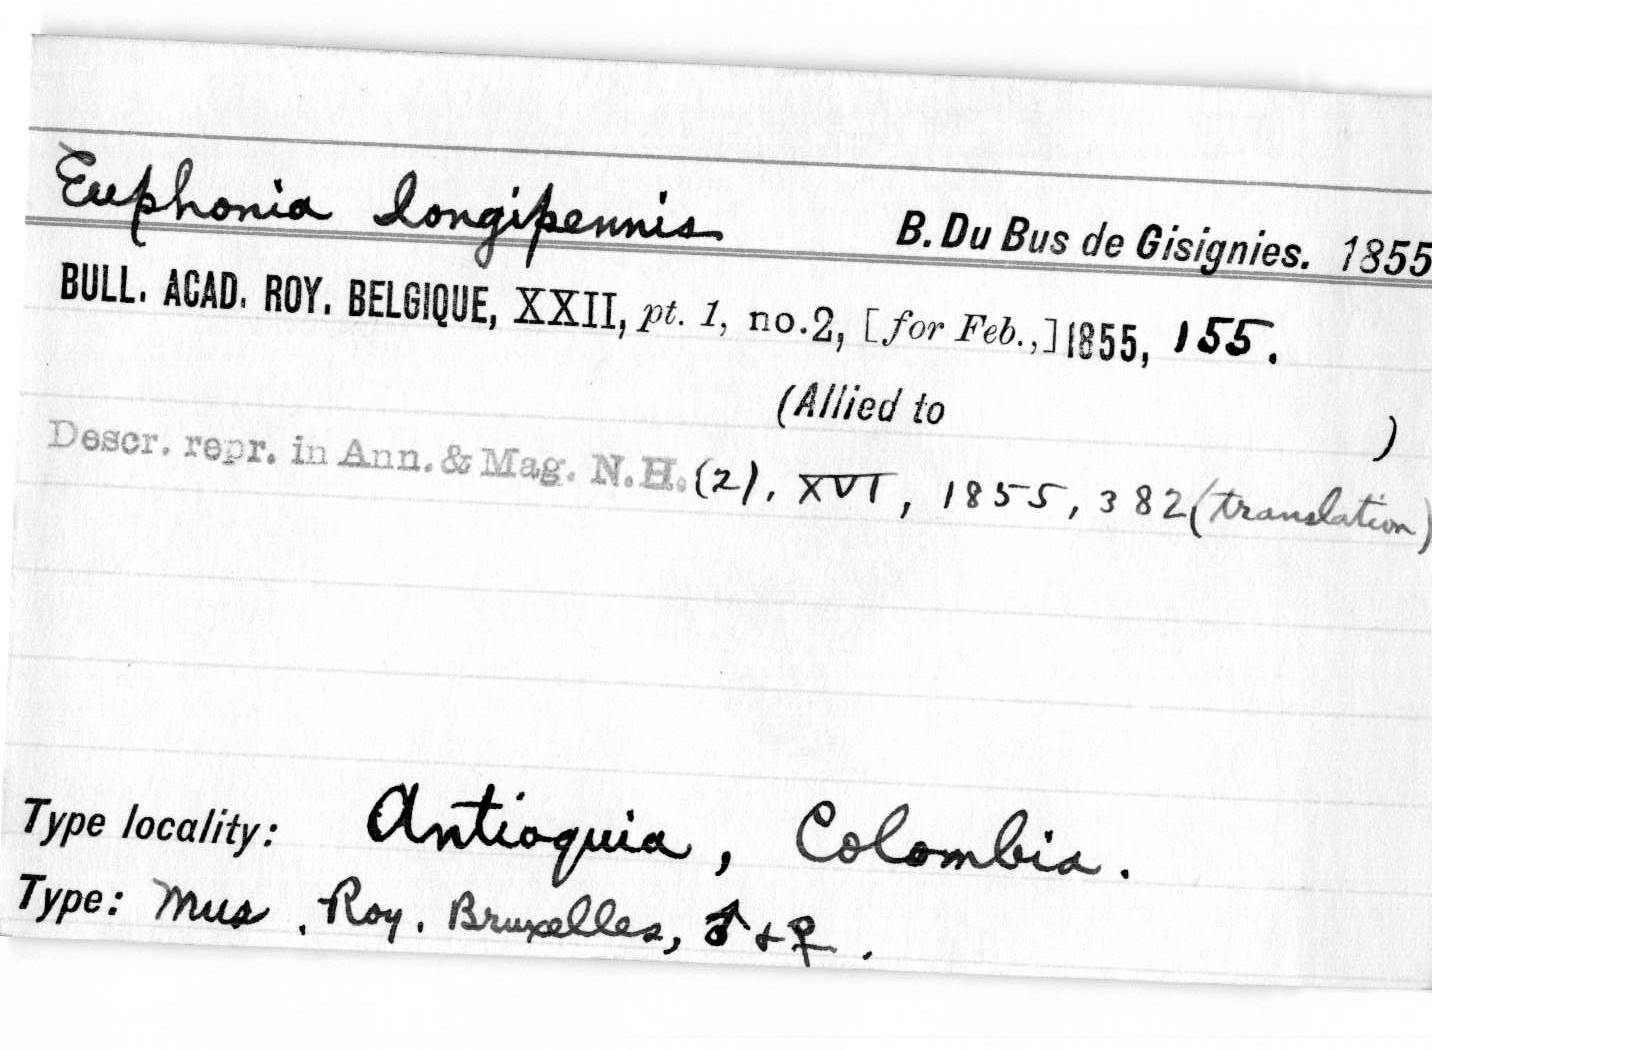 Euphonia longipennis B. Du Bus de Gisignies. 1855
BULL. ACAD. ROY. BELGIQUE, XXII, pt. 1, no.2, [for Feb.,] 1855, 155.
(Allied to )
Descr. repr. in Ann. & Mag. N.H. (2), XVI, 1855, 382 (translation)
Type locality: Antioquia, Colombia.
Type: Mus. Roy. Bruxelles, ♂ + ♀.